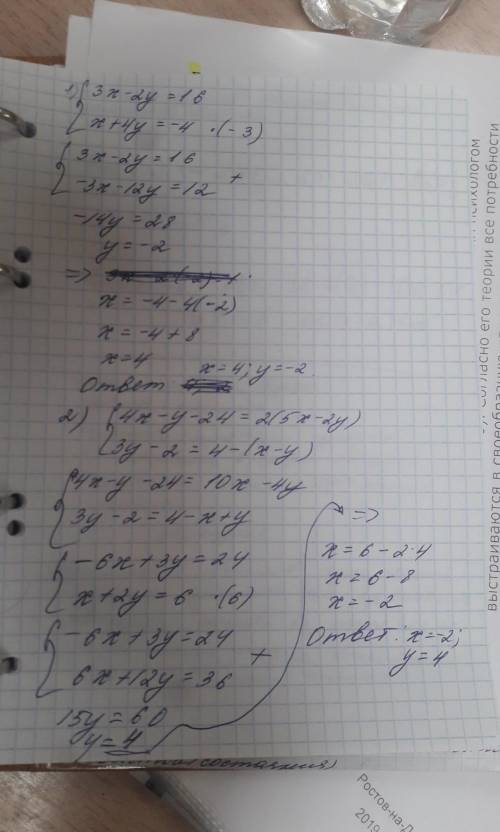 1) { 3x-2y=16
x+4y=-4 ·(-3)
{ 3x-2y=16
-3x-12y=12 +
-14y=28
y=-2
=>
x=-4-4(-2)
x=-4+8
x=4
x=4; y=-2
Ответ
2) { 4x-y-24=2(5x-2y)
3y-2=4-(x-y)
{ 4x-y-24=10x-4y
3y-2=4-x+y
{ -6x+3y=24
x+2y=6 ·(6)
{ -6x+3y=24
6x+12y=36 +
15y=60
y=4
=>
x=6-2·4
x=6-8
x=-2
Ответ: x=-2;
y=4
психологом
). Согласно его теории все потребности
выстраиваются в своеобразную
состояния)
Ростов-на-Д
2019